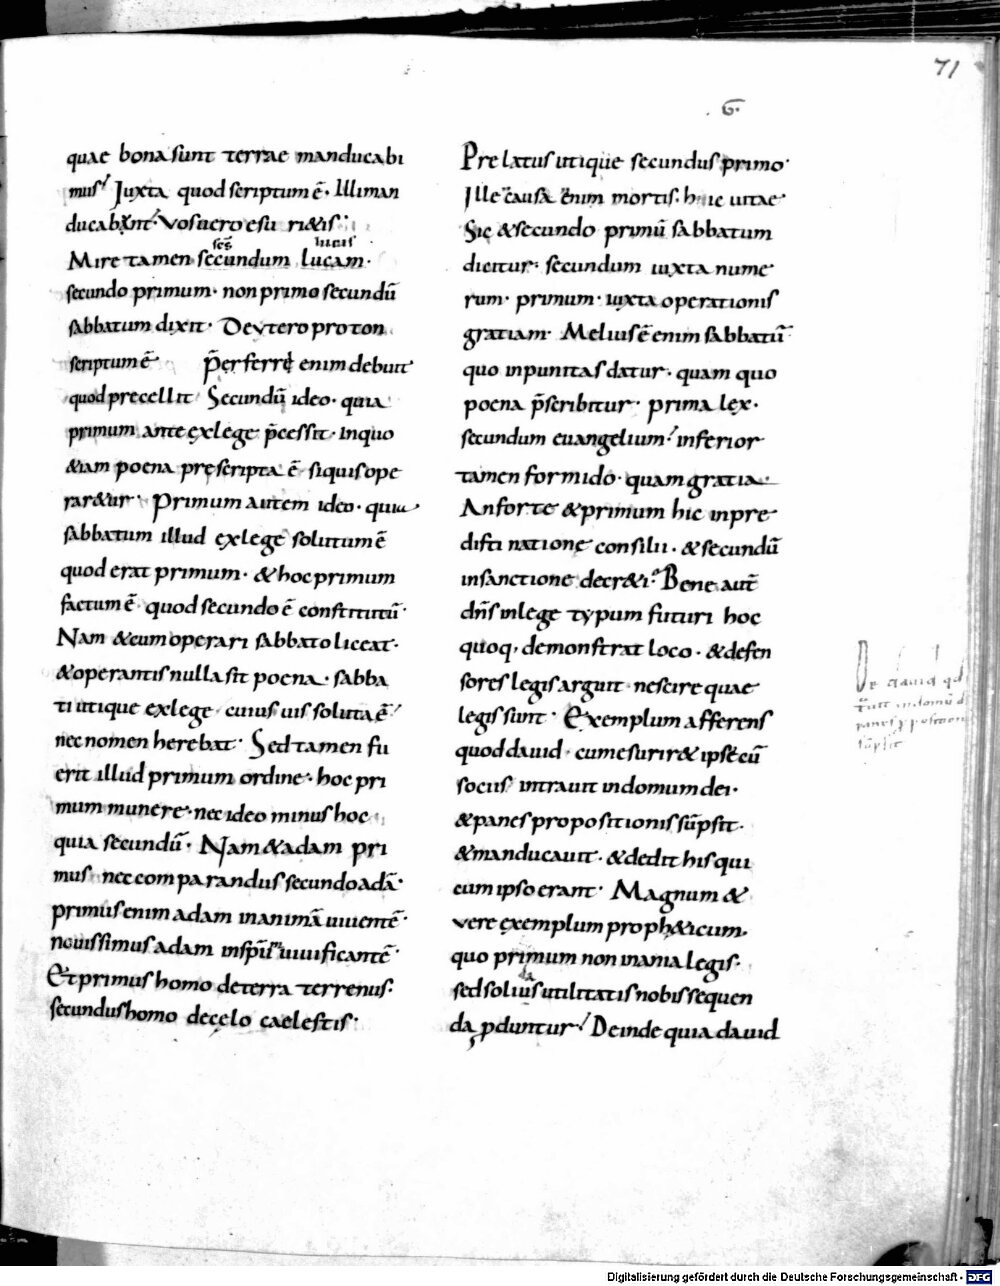 71
6.
quae bona sunt terrae manducabi
mus! Juxta quod scriptum ē. Illi man
ducab&nt. Vos uero esuri&is.
Mire tamen secundum lucam.
secundo primum. non primo secundū
sabbatum dixit. Deutero proton
scriptum ē p̄erferre enim debuit
quod precellit Secundū ideo. quia
primum ante ex lege p̄cessit. in quo
&iam poena prescripta ē siquis ope
rar&ur. Primum autem ideo. quia
sabbatum illud ex lege solutum ē
quod erat primum. & hoc primum
factum ē. quod secundo ē constitutū.
Nam & cum operari sabbato liceat.
& operantis nulla sit poena. sabba
ti utique ex lege cuius uis soluta ē!
nec nomen herebat. Sed tamen fu
erit illud primum ordine. hoc pri
mum munere. nec ideo minus hoc
quia secundū. Nam & adam pri
mus nec comparandus secundo adā.
primus enim adam in animā uiuentē.
nouissimus adam in sp̄m uiuificantē.
Et primus homo de terra terrenus.
secundus homo de cęlo caelestis.
Prelatus utique secundus primo.
Ille causa enim mortis. hic uitae.
Sic & secundo primū sabbatum
dicitur. secundum iuxta nume
rum. primum. iuxta operationis
gratiam. Melius ē enim sabbatū
quo inpunitas datur. quam quo
poena p̄scribitur. prima lex.
secundum euangelium! inferior
tamen formido. quam gratia.
An forte & primum hic in pre
distinatione consilii. & secundū
in sanctione decr&i. Bene aut̄
dn̄s in lege typum futuri hoc
quoq, demonstrat loco. & defen
sores legis arguit nescire quae
legis sunt. Exemplum afferens
quod dauid. cum esurir& ipse cū
sociis intrauit in domum dei.
& panes propositionis sūpsit.
& manducauit. & dedit his qui
cum ipso erant. Magnum &
vere exemplum proph&icum.
quo primum non inania legis.
sed solius utilitatis nobis sequen
da pduntur! Deinde quia dauid
De dauid qd
in domū d
panes ppositioni
sūpsit
Digitalisierung gefördert durch die Deutsche Forschungsgemeinschaft - DFG